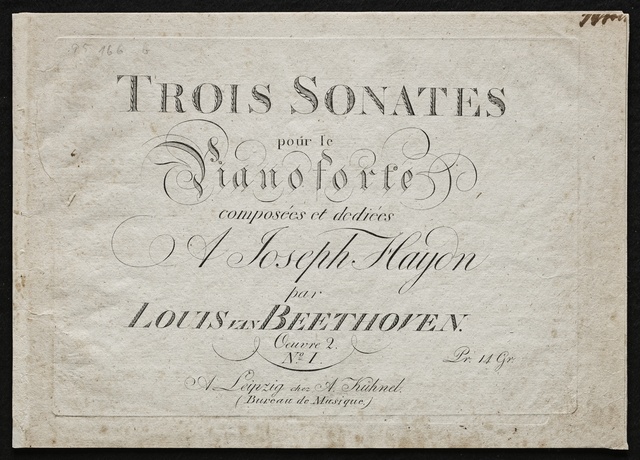 95 166 6
TROIS SONATES
pour le
Pianoforte,
composées et dediées
A Joseph Haydn
par
LOUIS VAN BEETHOVEN.
Oeuvre 2.
No. I.
Pr. 14 Gr.
A Leipzig chez A. Kühnel.
(Bureau de Musique)